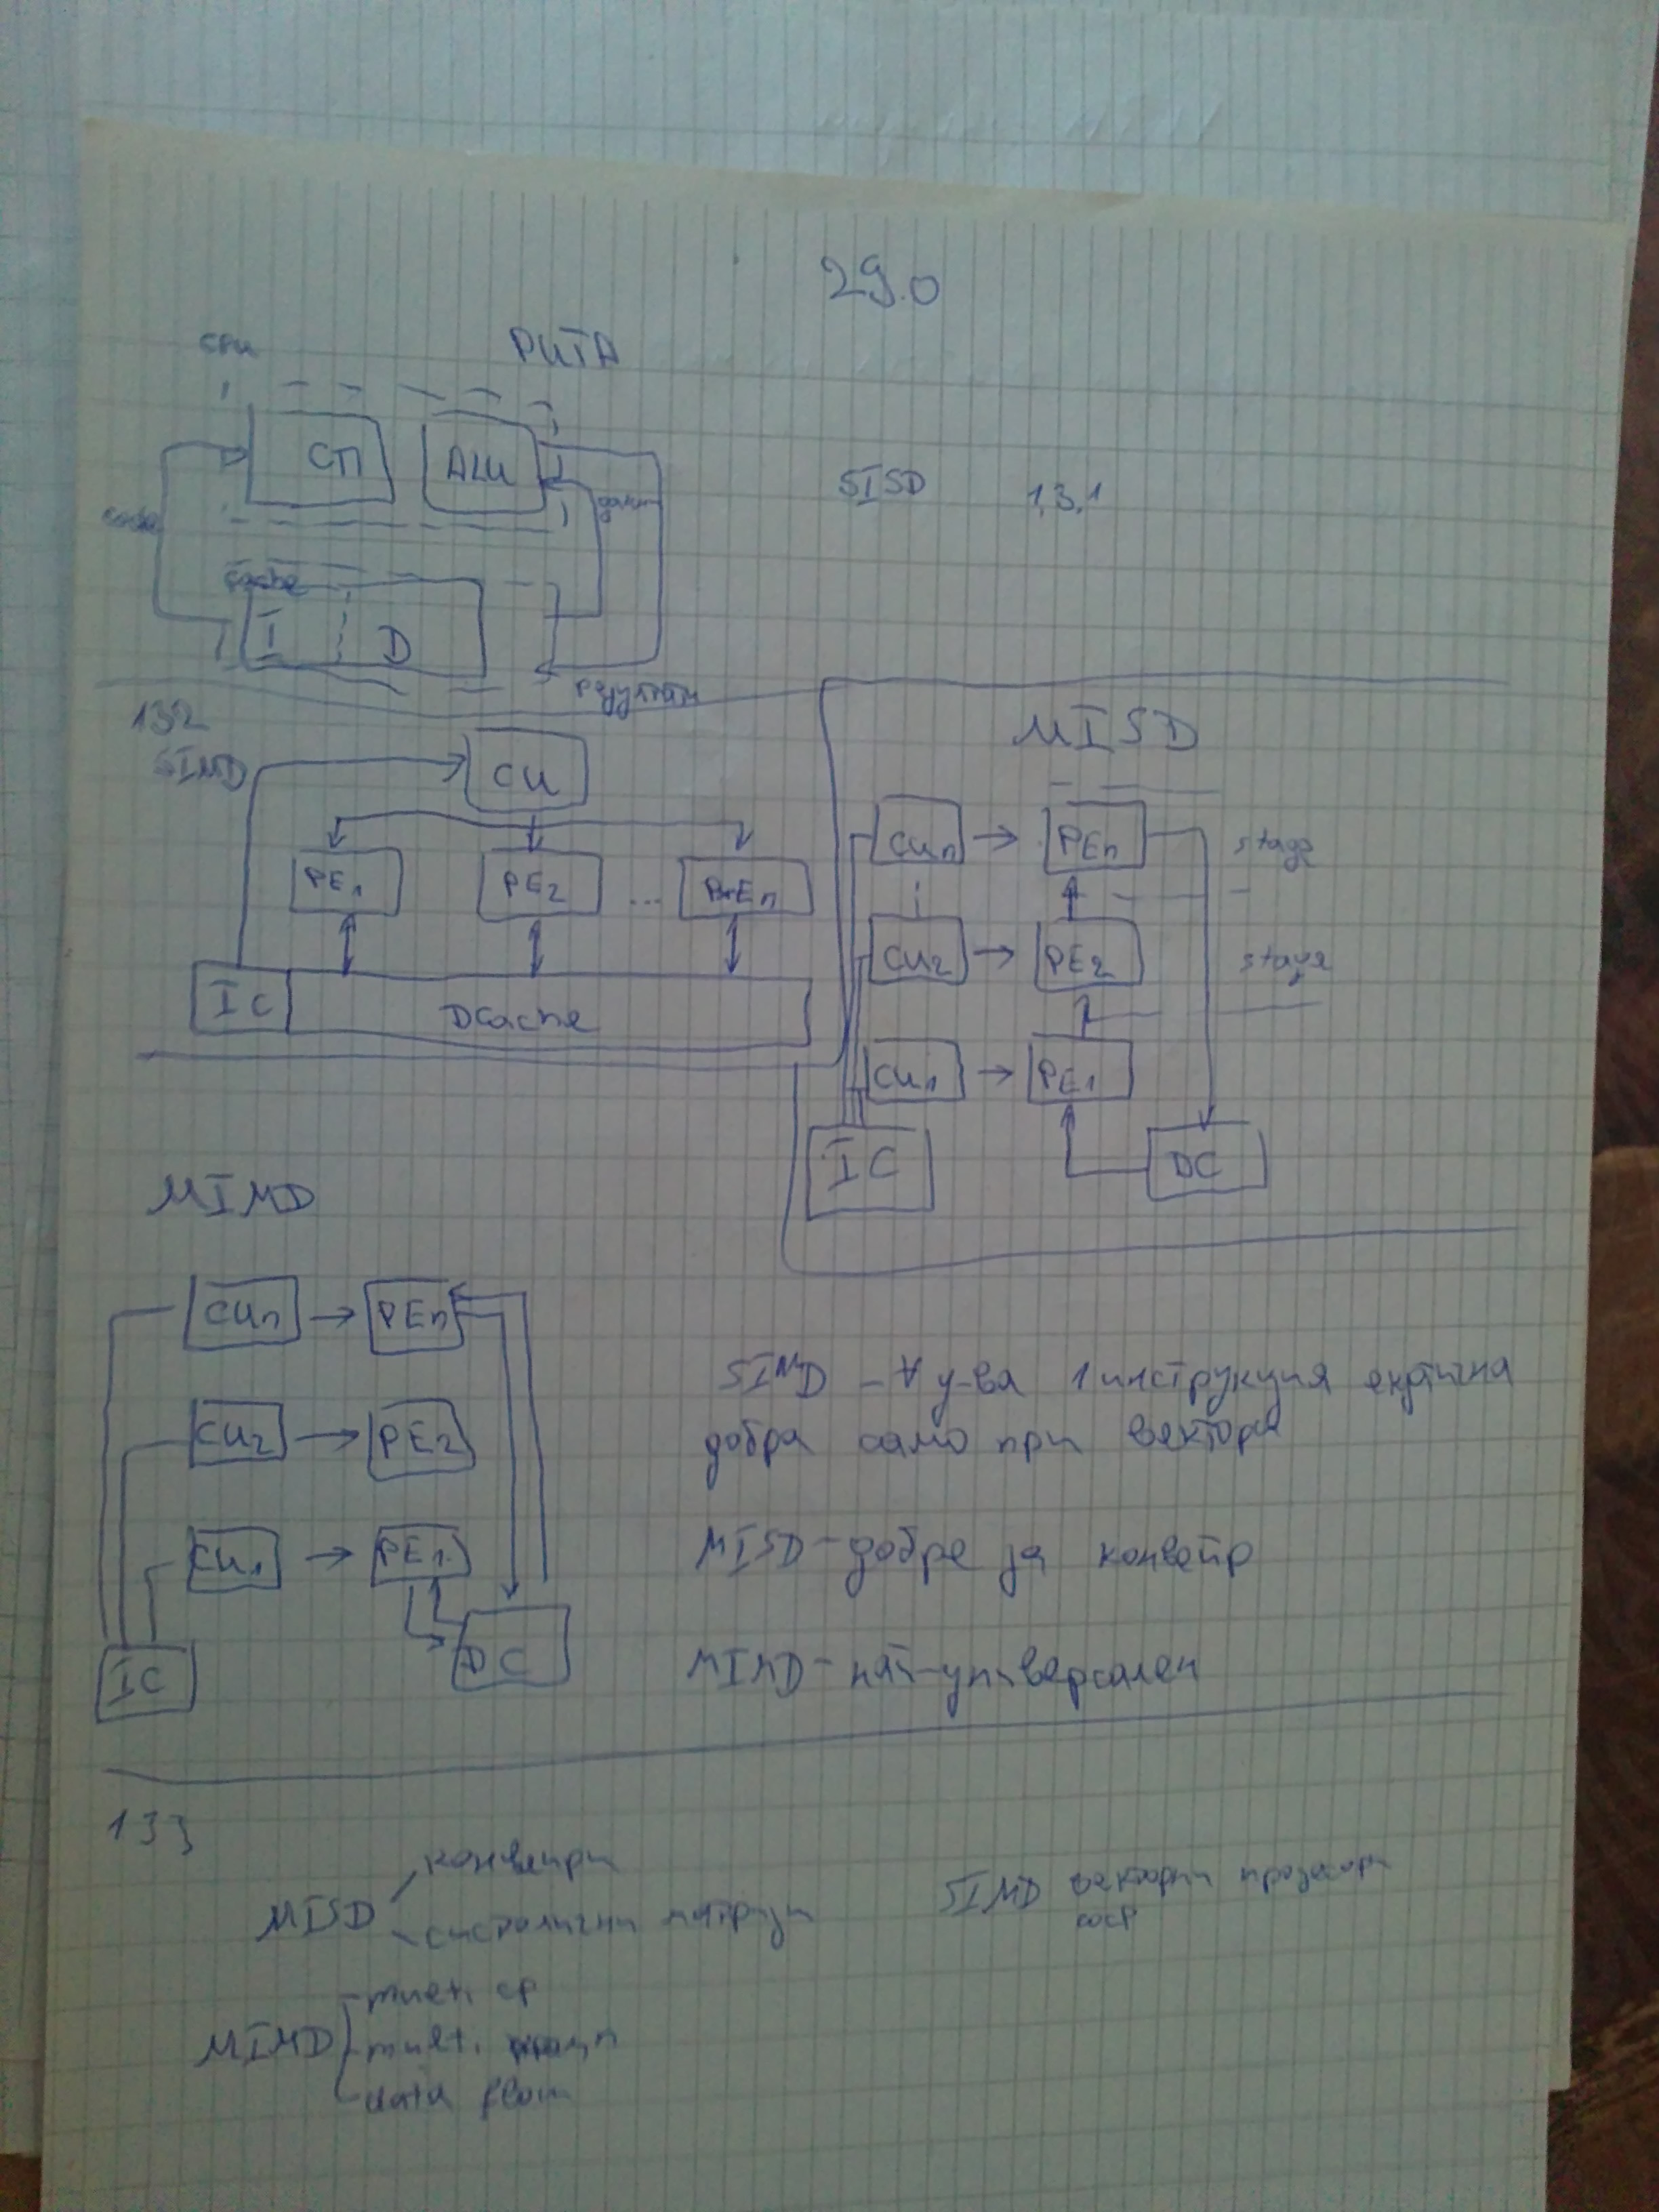 29.0
CPU
РИТА
СП ALU
SISD 1.3.1
code
данни
cache
I D
резултати
132
SIMD
CU
PE1 PE2 ... PEn
IC DCache
MISD
CUn → PEn stage
CU2 → PE2 stage
CU1 → PE1
IC DC
MIMD
CUn → PEn
CU2 → PE2
CU1 → PE1
IC DC
SIMD - ∀ у-ва 1 инструкция
добра само при вектори
MISD - добре за конвейр
MIMD - най-универсален
133
MISD конвейри
систолични матрици
SIMD векторни процесори
MIMD
multi
data flow